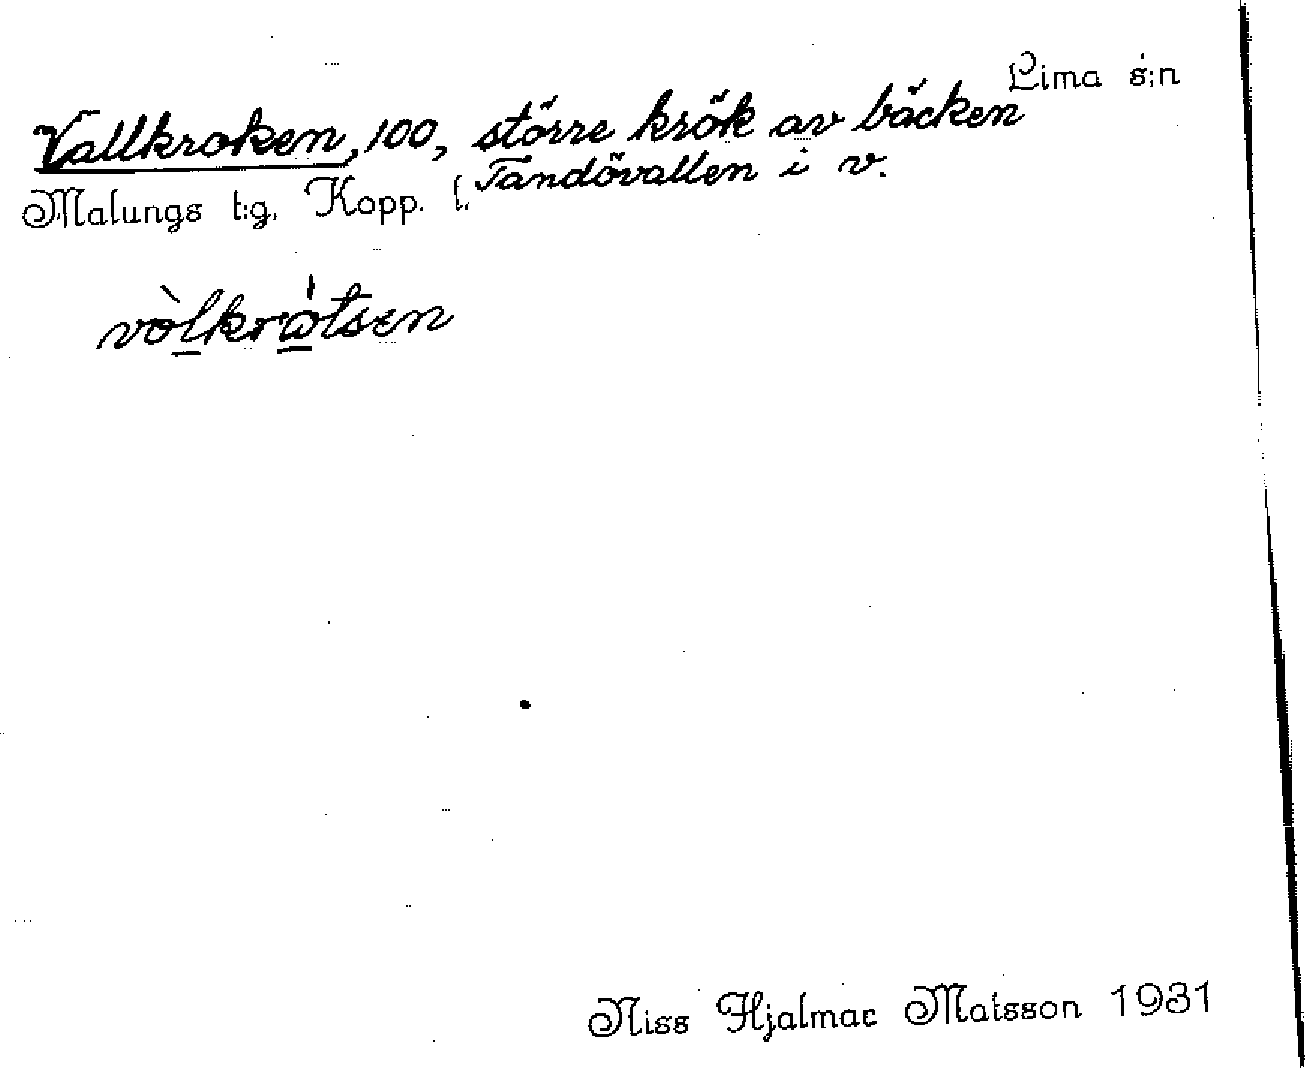 Lima s:n
Vallkroken, 100, större krök av bäcken
Malungs t:g. Kopp. l. Tandövallen i v.
vòlkròtsen
Niss Hjalmar Matsson 1931